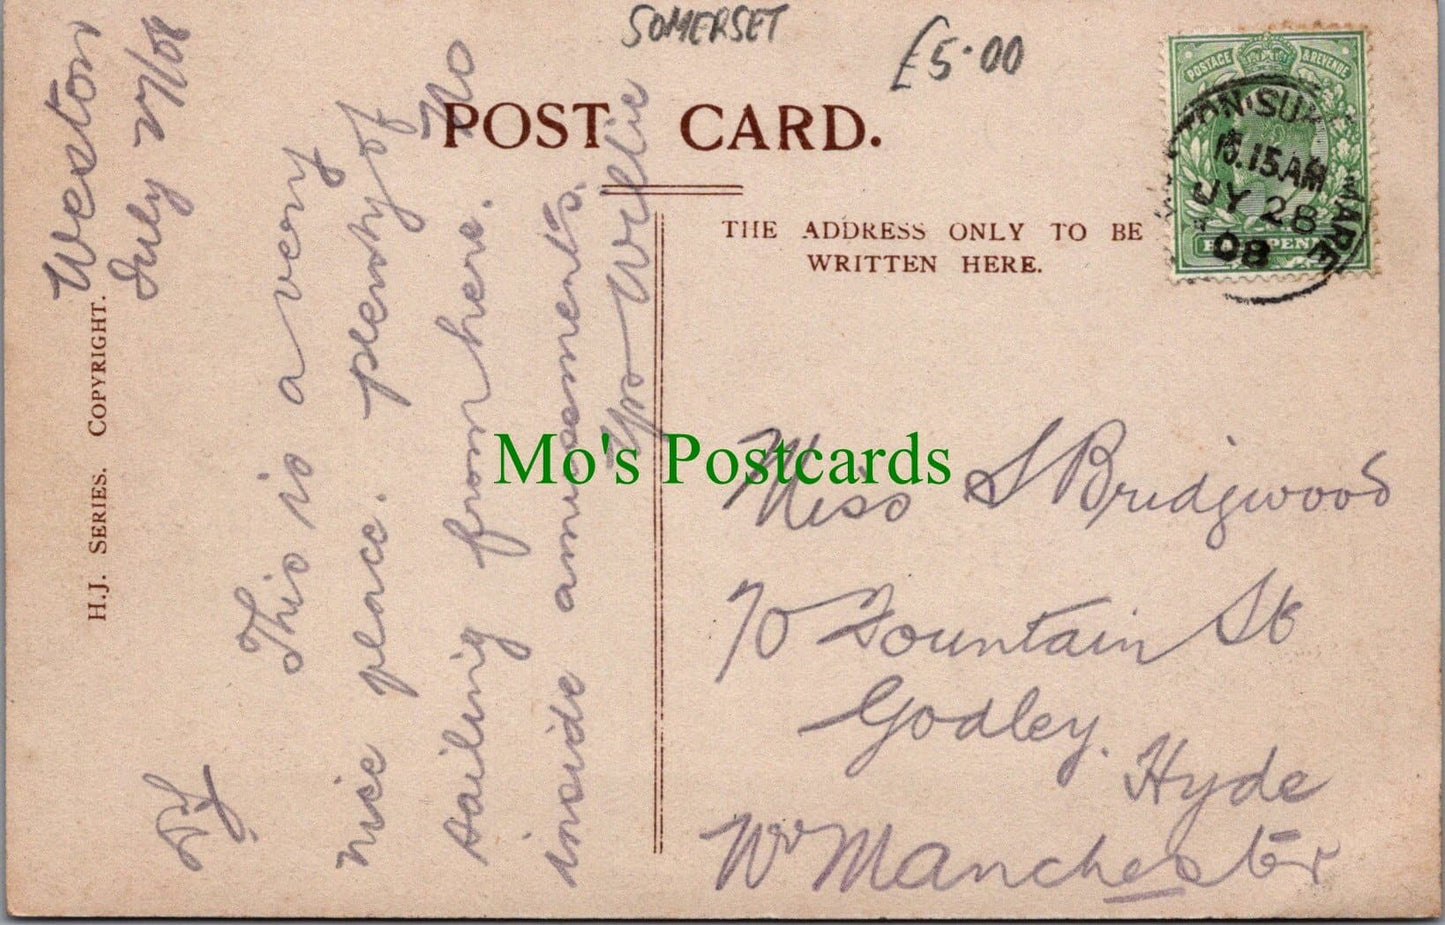 SOMERSET
£5.00
POST CARD.
THE ADDRESS ONLY TO BE
WRITTEN HERE.
10.15AM
JY 28
08
POSTAGE & REVENUE
H.J. SERIES. COPYRIGHT.
Weston
July 27/08
This is a very
nice place. plenty of
sailing from here. No
inside amusements.
Yrs Willie
Mo's Postcards
Miss S Bridgwood
70 Fountain St
Godley.
Hyde
Nr Manchester